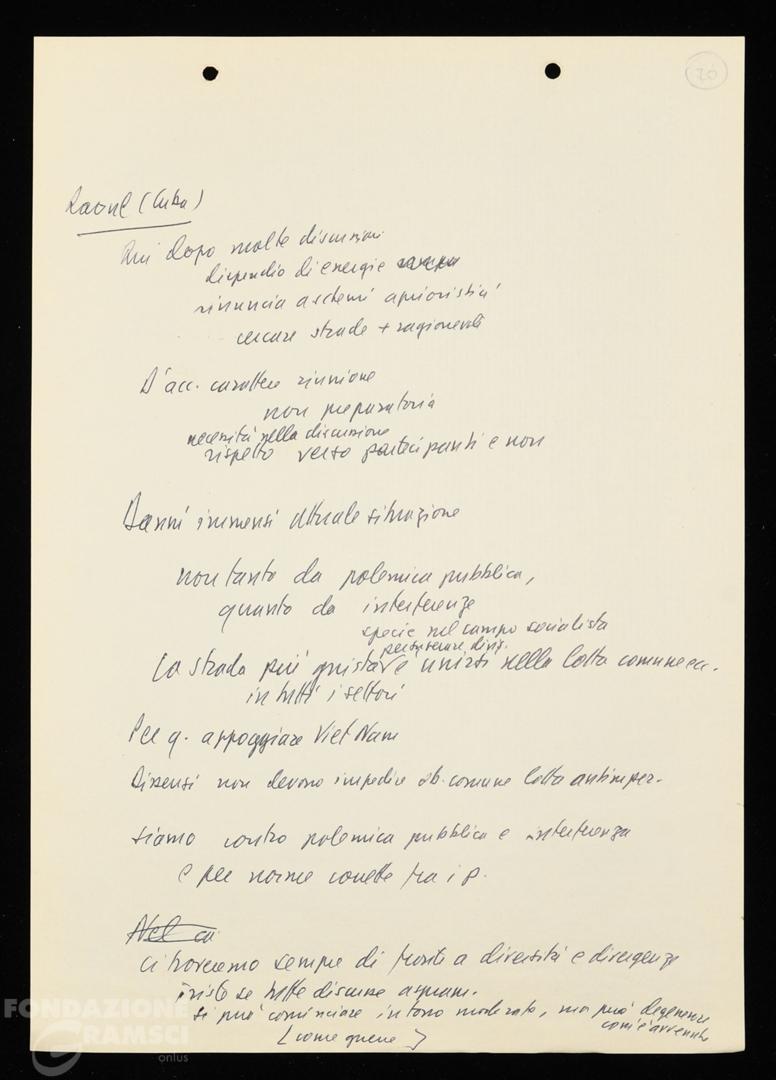 20
Raoul (Cuba)
Qui dopo molte discussioni
dispendio di energie
rinuncia a schemi aprioristici
cercare strade + ragionevoli
D'acc. carattere riunione
non preparatoria
necessità nella discussione
rispetto verso partecipanti e non
Danni immensi attuale situazione
non tanto da polemica pubblica,
quanto da interferenze
specie nel campo socialista
per superare diverg.
La strada più giusta è unirsi nella lotta comune
in tutti i settori
Per q. appoggiare Viet Nam
Dissensi non devono impedire ob. comune lotta antimper.
Siamo contro polemica pubblica e interferenza
e per norme corrette tra i p.
Nel
ci troveremo sempre di fronte a diversità e divergenze
triste se tutte discusse aspram.
si può cominciare in tono moderato, ma può degenerare
com'è avvenuto
(come guerre)
FONDAZIONE
GRAMSCI
onlus